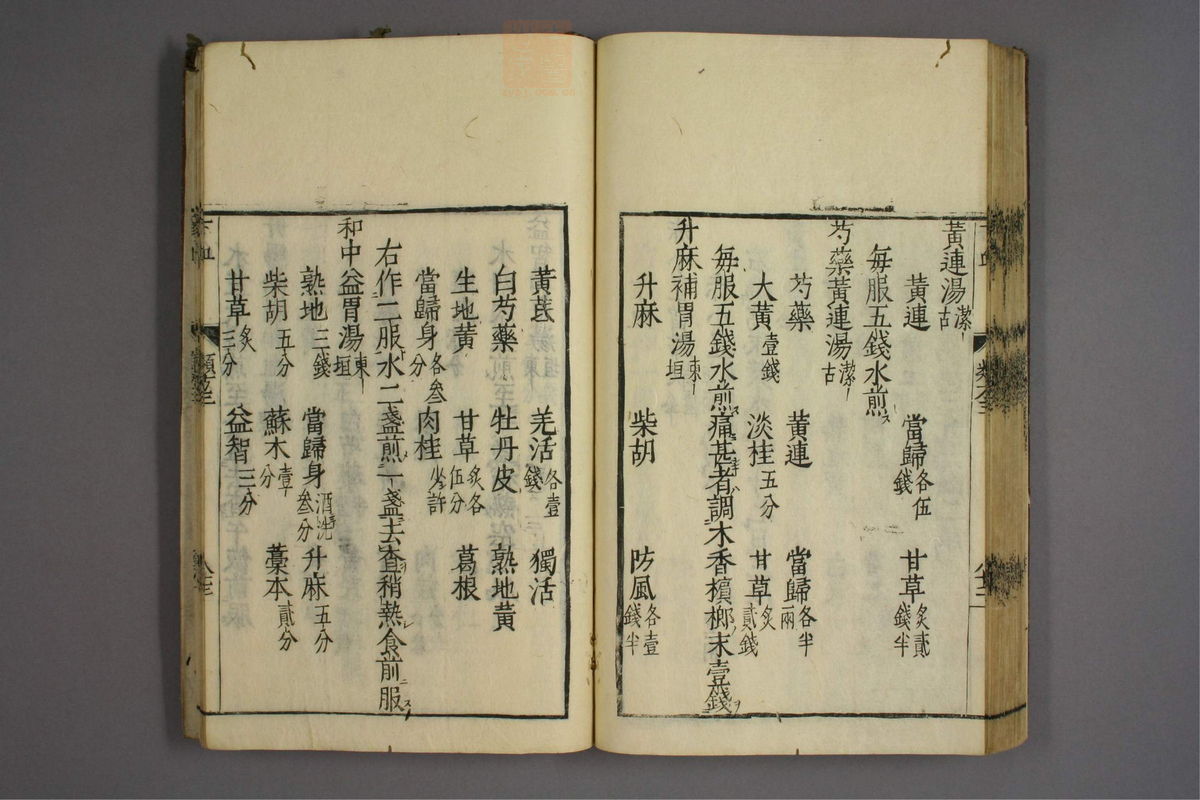 黃連湯 潔古
黃連 當歸 各伍錢 甘草 炙貳錢半
每服五錢水煎ス
芍藥黃連湯 潔古
芍藥 黃連 當歸 各半兩
大黃 壹錢 淡桂 五分 甘草 炙貳錢
每服五錢水煎ス痛甚者調木香檳榔末壹錢ヲ
升麻補胃湯 東垣
升麻 柴胡 防風 各壹錢半
黃芪 羌活 各壹錢 獨活
白芍藥 牡丹皮 熟地黃
生地黃 甘草 炙各伍分 葛根
當歸身 各叄分 肉桂 少許
右作二服水二盞煎一盞去查稍熱食前ニ服ス
和中益胃湯 東垣
熟地 三錢 當歸身 酒洗叄分 升麻 五分
柴胡 五分 蘇木 壹分 藁本 貳分
甘草 炙三分 益智 三分